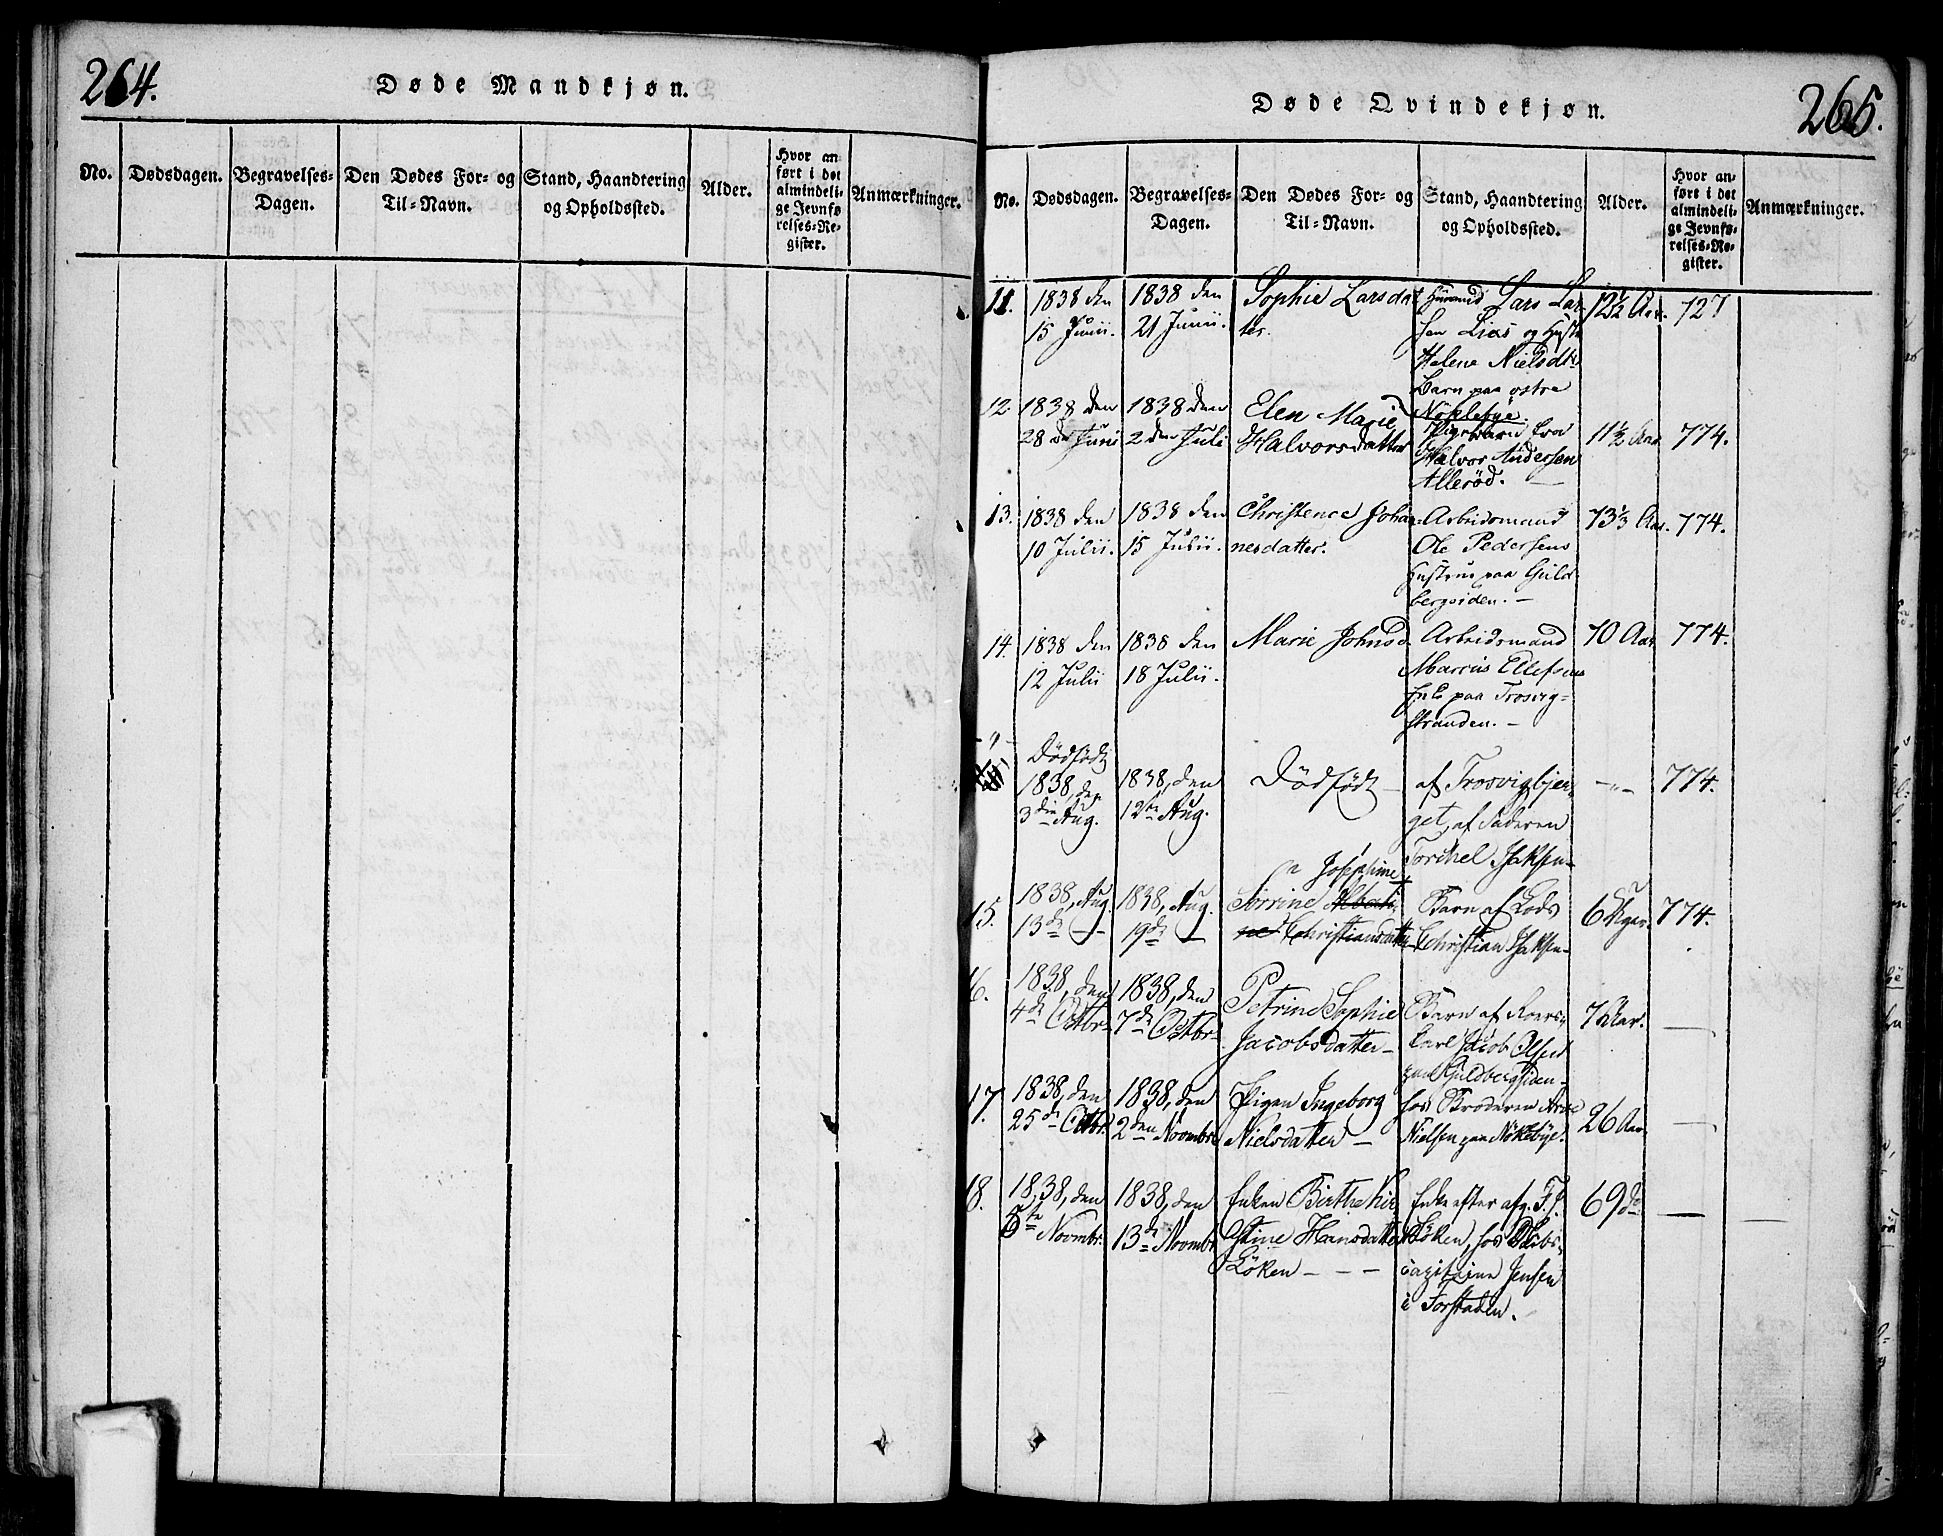 264.
Døde Mandkjøn.
No.
Dødsdagen.
Begravelses-
Dagen.
Den Dødes For- og
Til-Navn.
Stand, Haandtering
og Opholdssted.
Alder.
Hvor an-
ført i det
almindeli-
ge Jevnfø-
relses-Re-
gister.
Anmærkninger.
265.
Døde Qvindekjøn.
No.
Dødsdagen.
Begravelses-
Dagen.
Den Dødes For- og
Til-Navn.
Stand, Haandtering
og Opholdssted.
Alder.
Hvor an-
ført i det
almindeli-
ge Jevnfø-
relses-Re-
gister.
Anmærkninger.
11.
1838 den
15 Junii.
1838 den
21 Junii.
Sophie Larsdat
ter.
Lars Lar
sen Lies og Hustr
Helene Nielsdtr
Barn paa østre
Nøklebye.
12½ Aar.
727
12.
1838 den
28 de Juni
1838 den
2 den Juli
Elen Marie
Halvorsdatter
Pigebarn fra
Halvor Andersen
Allerød. —
11½ Aar
774.
13.
1838 den
10 Julii.
1838 den
15 Julii.
Christence Johan
nesdatter.
Arbeidsmand
Ole Pedersens
Hustrue paa Guld
bergsiden. —
73⅓ Aar.
774.
14.
1838 den
12 Julii
1838 den
18 Julii.
Marie Johnsd.
Arbeidsmand
Marcus Ellefsens
paa Trosvig-
stranden. —
70 Aar
774.
— " —
Dødfødt
1838, den
3die Aug.
1838, den
12te Aug.
Dødfødt —
af Trosvigbjer-
get, af Faderen
Torchel Isaksen
— " —
774.
15.
1838, Aug.
13de —
1838, Aug.
19de —
Josephine
Sørrine Alberti-
ne Christiansdatter
Barn af Lods
Christian Isaksen
6 Uger.
774.
16.
1838, den
4de Octbr
1838, den
7de Octbr
Petrine Sophie
Jacobsdatter —
Barn af Roers-
karl Jacob Olsen
paa Guldbergsiden
7 Aar.
—
17.
1838, den
25de Octbr.
1838, den
2den Novmbr
Pigen Ingeborg
Nielsdatter —
hos Broderen Arne
Nielsen paa Nøklebye.
26 Aar
—
18.
1838, den
5te Novmbr.
1838, den
13de Novmbr
Enken Birthe Kir
stine Hansdatter
Løken — — —
Enke efter afg. F. J.
Løken, hos Skibs-
capitaine Jensen
i Forstaden.
69 do
—
—